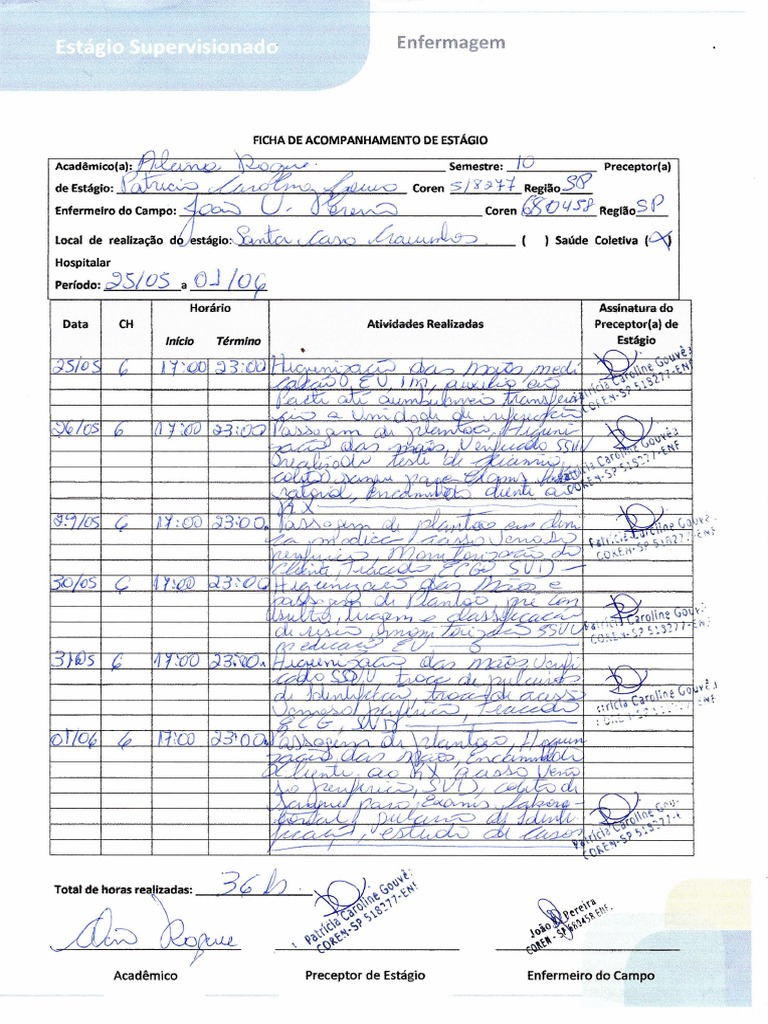 Estágio Supervisionado
Enfermagem
FICHA DE ACOMPANHAMENTO DE ESTÁGIO
Acadêmico(a): Roque. Semestre: 10 Preceptor(a)
de Estágio: Patricia Caroline Gouvea Coren 518277 Região SP
Enfermeiro do Campo: João V. Pereira Coren 680458 Região SP
Local de realização do estágio: Santa Casa ( ) Saúde Coletiva (x)
Hospitalar
Período: 25/05 a 01/06
Data CH Horário Atividades Realizadas Assinatura do Preceptor(a) de Estágio
Início Término
25/05 6 17:00 23:00 Higienização das mãos, medi
cação EV, IM, auxilio em
Pacte até
a Unidade de referência
26/05 6 17:00 23:00 Passagem de plantão, Higieni-
zação das mãos, Verificado SSVV
realizado teste de
coleta sangue para Exams labo
ratorial, encaminhado cliente ao
RX
29/05 6 17:00 23:00. Passagem de plantão em clini
ca medica, acesso Venoso
periferico, Monitorização do
Cliente, Traçado ECG, SVD
30/05 6 17:00 23:00 Higienização das Mãos e
passagem de Plantão, pre con
sulta, triagem e classificação
de risco, monitorização SSVV
medicação EV
31/05 6 17:00 23:00. Higienização das mãos, Verifi
cado SSVV, troca de pulseiras
de Identificação, troca de acesso
Venoso periférico, Traçado
ECG, SVD
01/06 6 17:00 23:00. Passagem de plantão, Higieni
zação das Mãos, Encaminhado
Cliente ao RX, acesso Veno
so periferico, SVD, coleta de
Sangue para Exams labora-
torial, pulseira de Identi-
ficação, estudo de casos
Patrícia Caroline Gouvêa
COREN-SP 518277-ENF
Patrícia Caroline Gouvêa
COREN-SP 518277-ENF
Patrícia Caroline Gouvêa
COREN-SP 518277-ENF
Patrícia Caroline Gouvê
COREN-SP 518277-ENF
trícia Caroline Gouvêa
COREN-SP 518277-ENF
Patrícia Caroline Gou
COREN-SP 518277-E
Total de horas realizadas: 36 hs.
Roque
Patrícia Caroline Gouvêa
COREN-SP 518277-ENF
João V. Pereira
COREN-SP 680458 ENF.
Acadêmico Preceptor de Estágio Enfermeiro do Campo